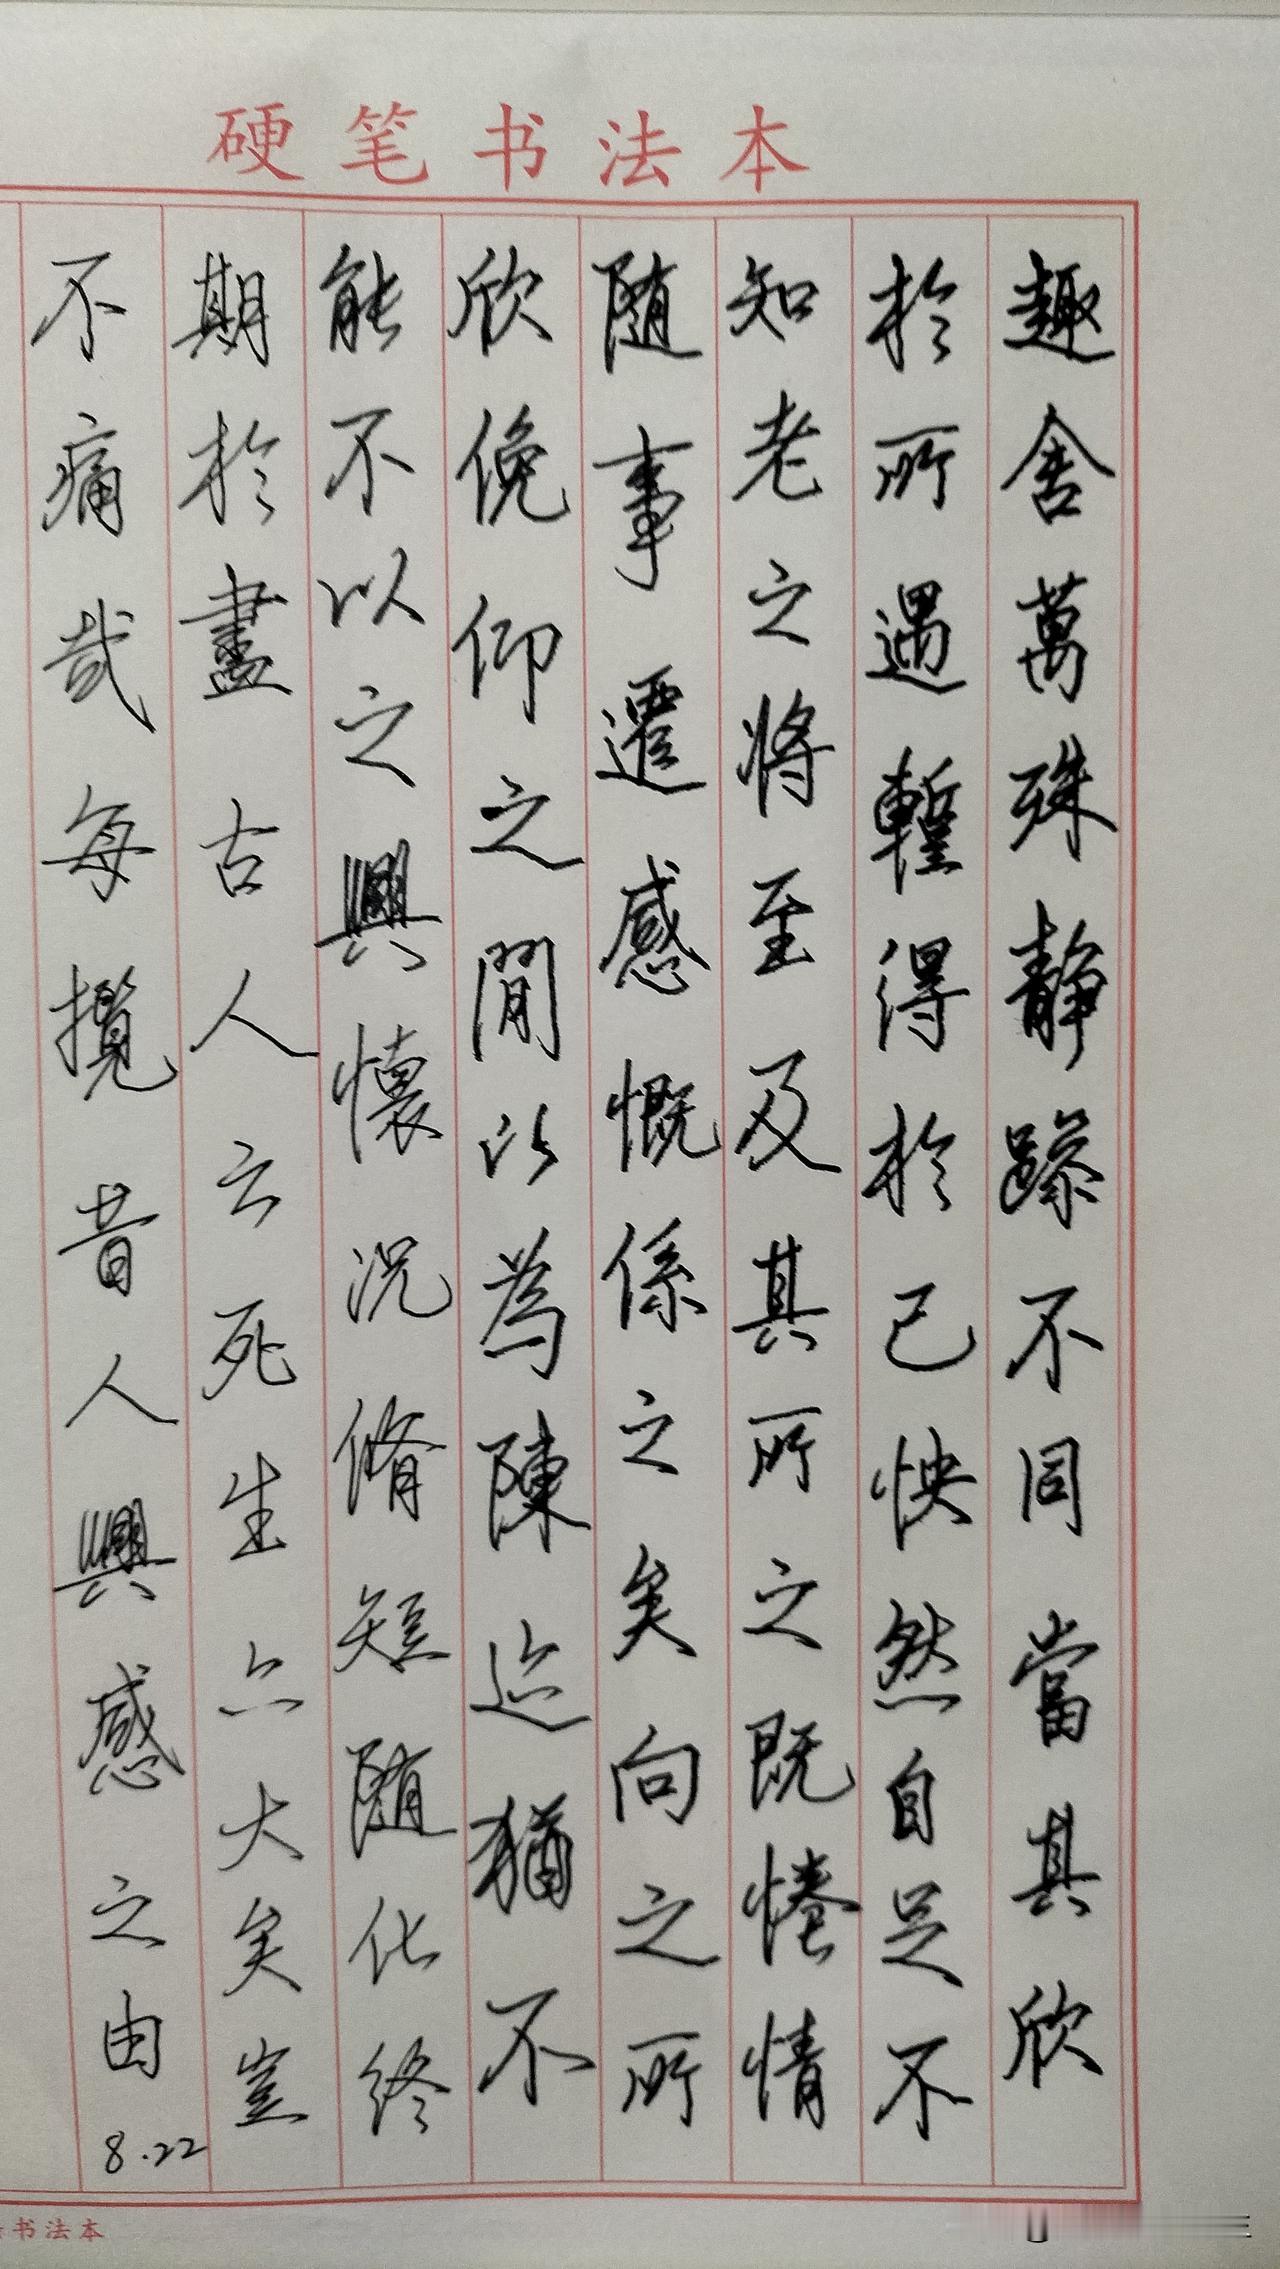 硬笔书法本
趣舍萬殊静躁不同當其欣
於所遇暫得於己怏然自足不
知老之將至及其所之既惓情
随事遷感慨係之矣向之所
欣俛仰之閒以為陳迹猶不
能不以之興懷況脩短随化終
期於盡古人云死生亦大矣豈
不痛哉每攬昔人興感之由
8.22
书法本